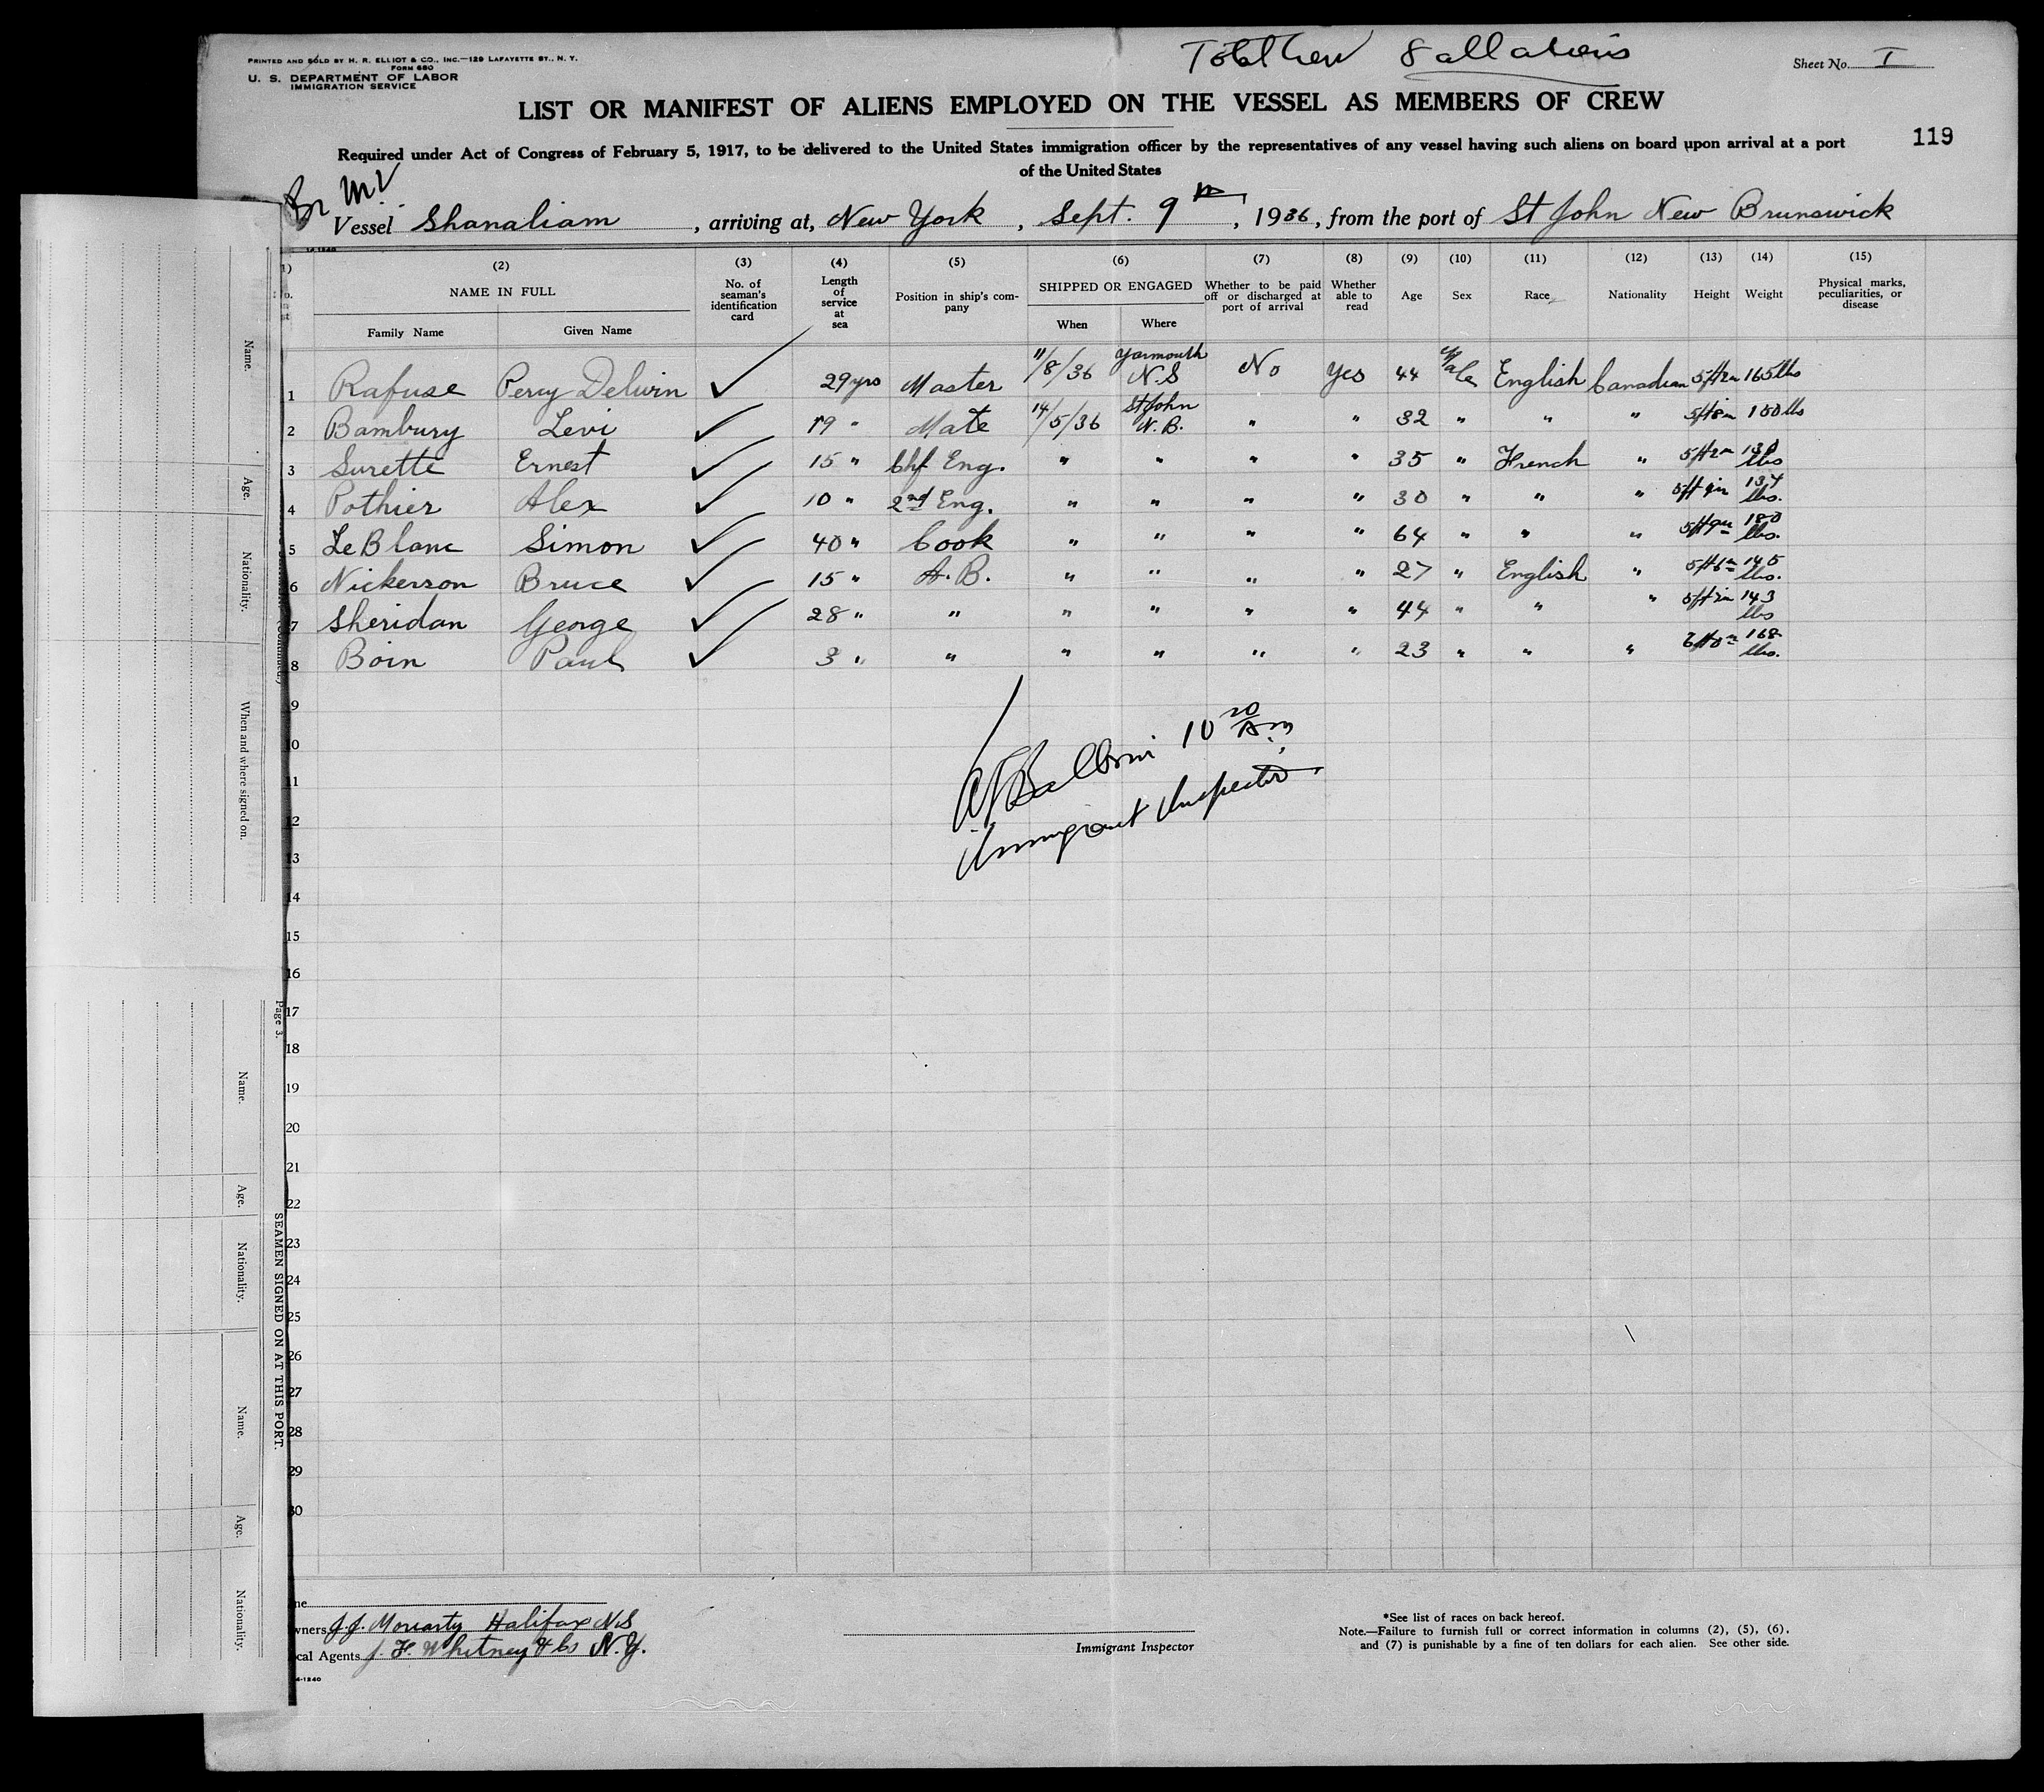 PRINTED AND SOLD BY H. R. ELLIOT & CO., INC.—129 LAFAYETTE ST., N. Y.
FORM 680
U. S. DEPARTMENT OF LABOR
IMMIGRATION SERVICE
Total Crew 8 all aliens
Sheet No. I
LIST OR MANIFEST OF ALIENS EMPLOYED ON THE VESSEL AS MEMBERS OF CREW
119
Required under Act of Congress of February 5, 1917, to be delivered to the United States immigration officer by the representatives of any vessel having such aliens on board upon arrival at a port
of the United States
Br M.V.
Vessel Shanaliam, arriving at, New York, Sept. 9th, 1936, from the port of St John New Brunswick
(2) (3) (4) (5) (6) (7) (8) (9) (10) (11) (12) (13) (14) (15)
NAME IN FULL
Family Name Given Name
No. of seaman's identification card
Length of service at sea
Position in ship's company
SHIPPED OR ENGAGED
When Where
Whether to be paid off or discharged at port of arrival
Whether able to read
Age Sex Race Nationality Height Weight
Physical marks, peculiarities, or disease
1 Rafuse Percy Delwin ✓ 29 yrs Master 11/8/36 Yarmouth N.S No Yes 44 Male English Canadian 5ft 2in 165 lbs
2 Bambury Levi ✓ 19 " Mate 14/5/36 St John N.B. " " 32 " " " 5ft 8in 150 lbs
3 Surette Ernest ✓ 15 " Chf Eng. " " " " 35 " French " 5ft 2in 130 lbs
4 Pothier Alex ✓ 10 " 2nd Eng. " " " " 30 " " " 5ft 4in 137 lbs.
5 LeBlanc Simon ✓ 40 " Cook " " " " 64 " " " 5ft 9in 180 lbs.
6 Nickerson Bruce ✓ 15 " A.B. " " " " 27 " English " 5ft 6in 145 lbs.
7 Sheridan George ✓ 28 " " " " " " 44 " " " 5ft 7in 143 lbs
8 Boin Paul ✓ 3 " " " " " " 23 " " " 6ft 0in 168 lbs.
9
10
11
12
13
14
15
16
17
18
19
20
21
22
23
24
25
26
27
28
29
30
10 20 Am
Immigrant Inspector
Owners J.J. Moriarty Halifax N.S
Local Agents J. F. Whitney & Co N.Y.
Immigrant Inspector
*See list of races on back hereof.
Note.—Failure to furnish full or correct information in columns (2), (5), (6),
and (7) is punishable by a fine of ten dollars for each alien. See other side.
14-1240
Name.
Age.
Nationality.
When and where signed on.
Page 3.
SEAMEN SIGNED ON AT THIS PORT.
Name.
Age.
Nationality.
Name.
Age.
Nationality.